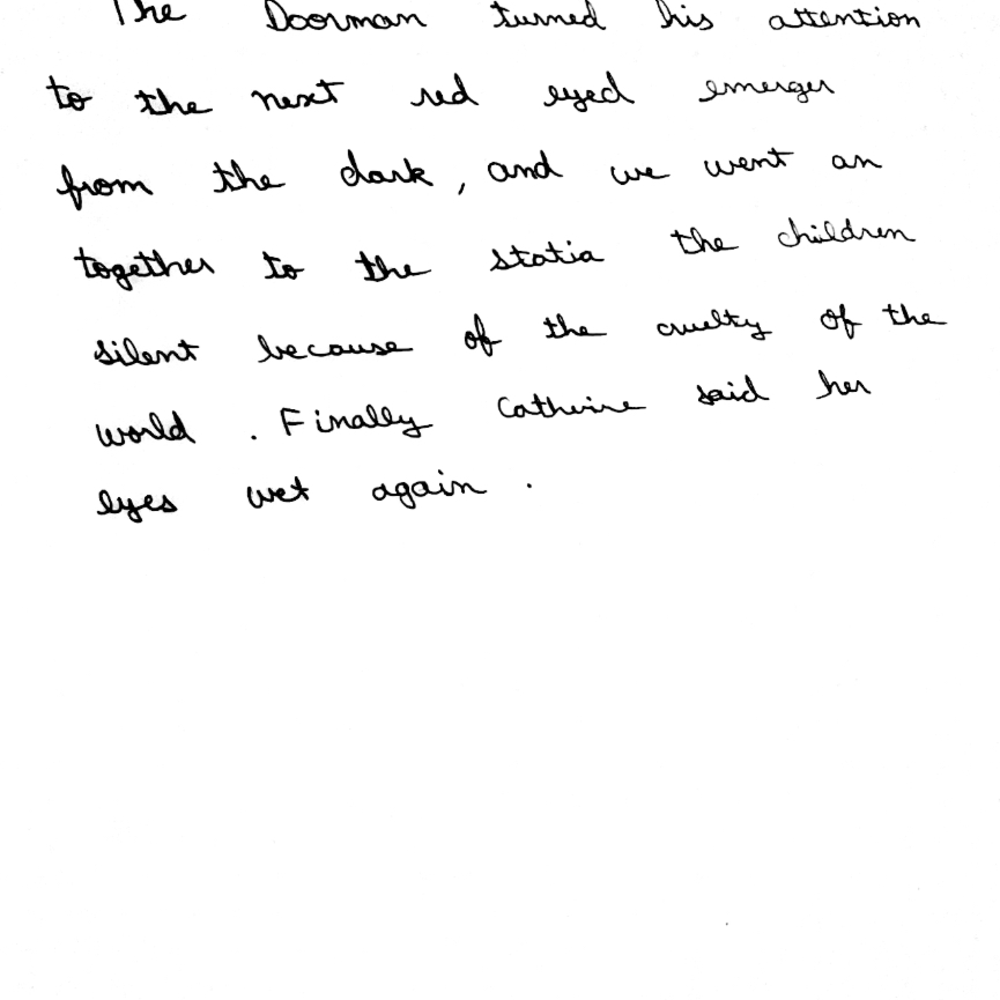 The Doorman turned his attention
to the next red eyed emerger
from the dark, and we went an
together to the statia the children
silent because of the cruelty of the
world. Finally Catherine said her
eyes wet again.